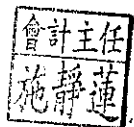 會計主任
施靜蓮